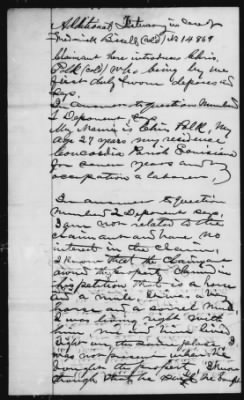 Additional Testimony in Case of
Fredrick Bisell (Col'd) No 14869
Claimant here introduces Chris.
Polk (Col'd) Who being by me
first duly sworn deposes and
Says.
In answer to question Number
1 Deponent
My Name is Chris Polk, My
Age 27 years my residence
Concordia Parish Louisiana
for seven years and my
occupation a laborer,
In answer to question
Number 2 Deponent says.
I am not related to the
claimant and have no
interest in the claim,
I know that the claimant
owned the property claimed in
his petition that is a horse
and a mule,
horse and a sorrel mule,
I was living right with
him,
right on the same place I
was not present when he
bought the property. I know
though that he